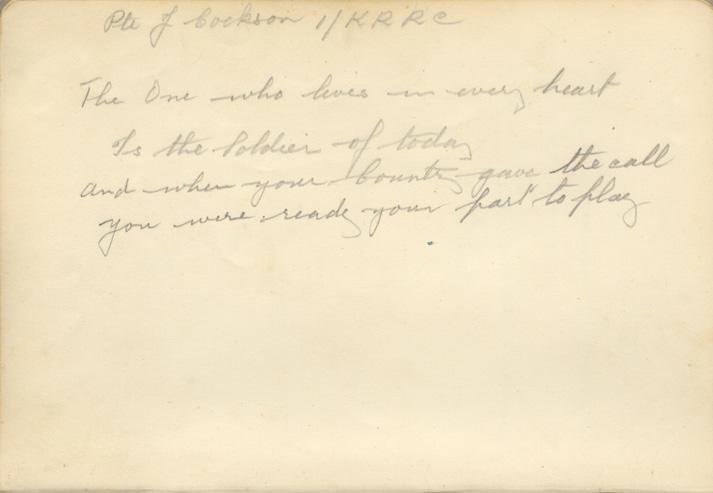 Pte J Cockson 1/KRRC
The One who lives in every heart
Is the Soldier of today
and when your Country gave the call
you were ready your part to play